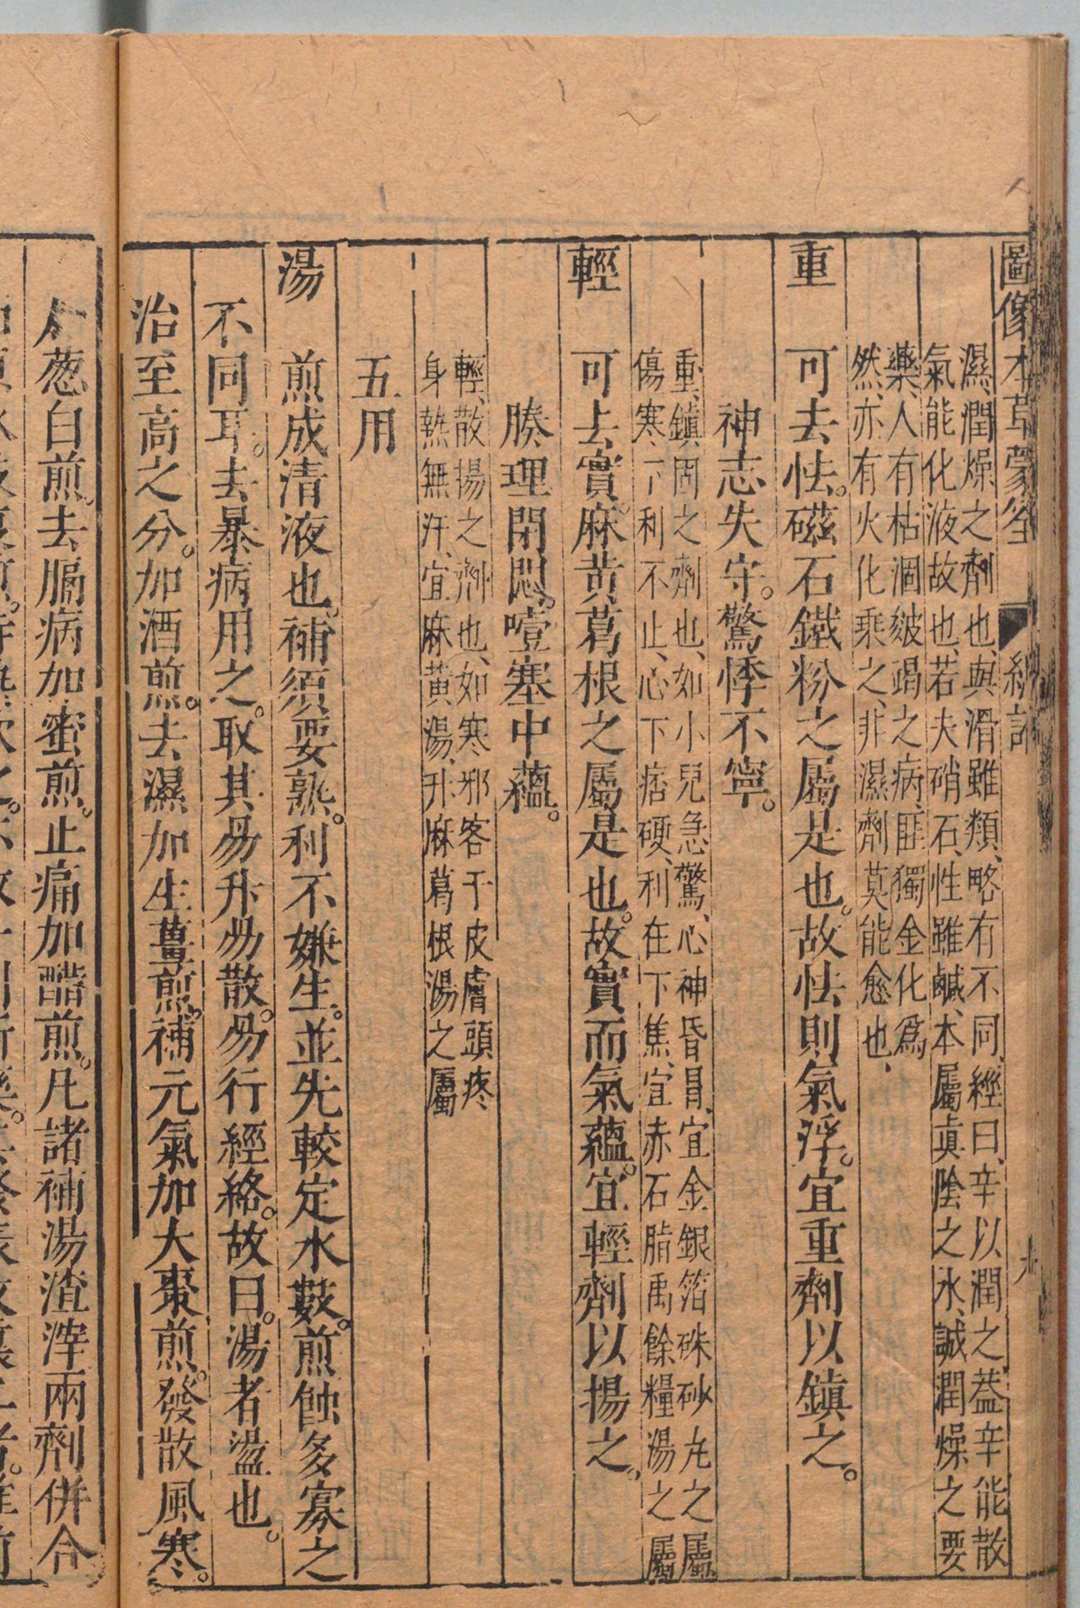 圖像本草蒙筌
總論
九
濕、潤燥之劑也、與滑雖類、略有不同、經曰、辛以潤之、蓋辛能散
氣能化液故也、若夫硝石、性雖鹹、本屬真陰之水、誠潤燥之要
藥、人有枯涸皴竭之病、匪獨金化爲
然、亦有火化乘之、非濕劑莫能愈也、
重 可去怯。磁石鐵粉之屬是也。故怯則氣浮。宜重劑以鎮之。
神志失守。驚悸不寧。
重、鎮固之劑也、如小兒急驚、心神昏冒、宜金銀箔硃砂丸之屬
傷寒下利不止、心下痞硬、利在下焦、宜赤石脂禹餘糧湯之屬
輕 可去實。麻黃葛根之屬是也。故實而氣蘊。宜輕劑以揚之。
腠理閉悶。噎塞中蘊。
輕、散揚之劑也、如寒邪客干皮膚頭疼
身熱無汗、宜麻黃湯、升麻葛根湯之屬
五用
湯 煎成清液也。補須要熟。利不嫌生。並先較定水數。煎蝕多寡之
不同耳。去暴病用之。取其易升易散。易行經絡。故曰。湯者盪也。
治至高之分。加酒煎。去濕加生薑煎。補元氣加大棗煎。發散風寒。
加葱白煎。去膈病加蜜煎。止痛加醋煎。凡諸補湯渣滓兩劑併合